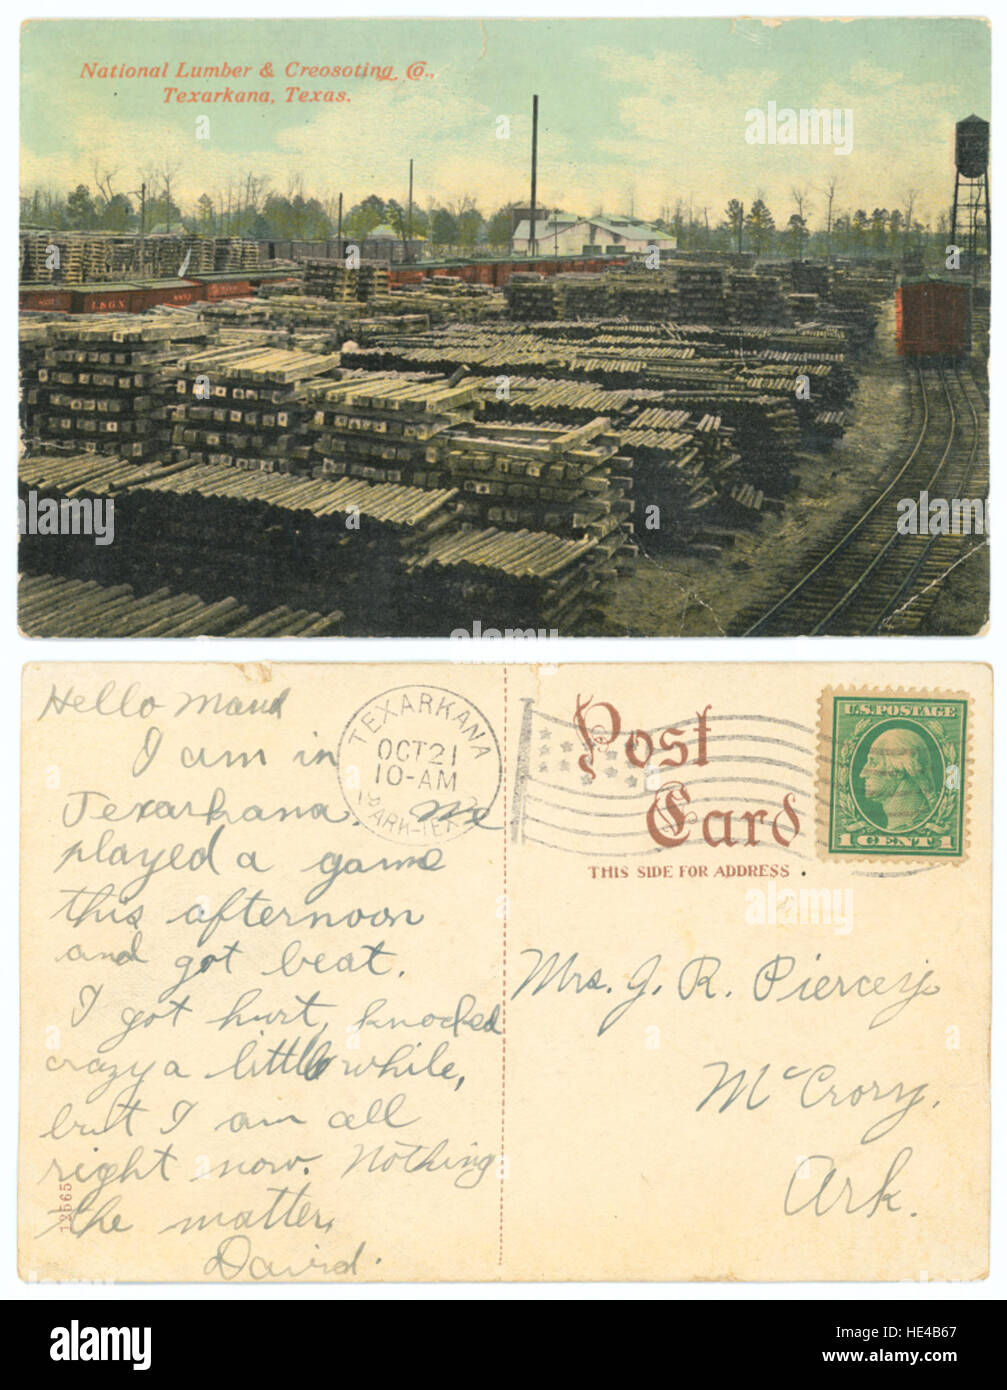 National Lumber & Creosoting Co.,
Texarkana, Texas.
I.&G.N.
Hello Maud
I am in
Texarkana. We
played a game
this afternoon
and got beat.
I got hurt, knocked
crazy a little while,
but I am all
right now. Nothing
the matter,
David.
12565
TEXARKANA
OCT 21
10-AM
ARK-TEX
Post
Card
THIS SIDE FOR ADDRESS
U.S. POSTAGE
1 CENT 1
Mrs. J. R. Piercey
McCrory,
Ark.
alamy
alamy
HE4B67
www.alamy.com